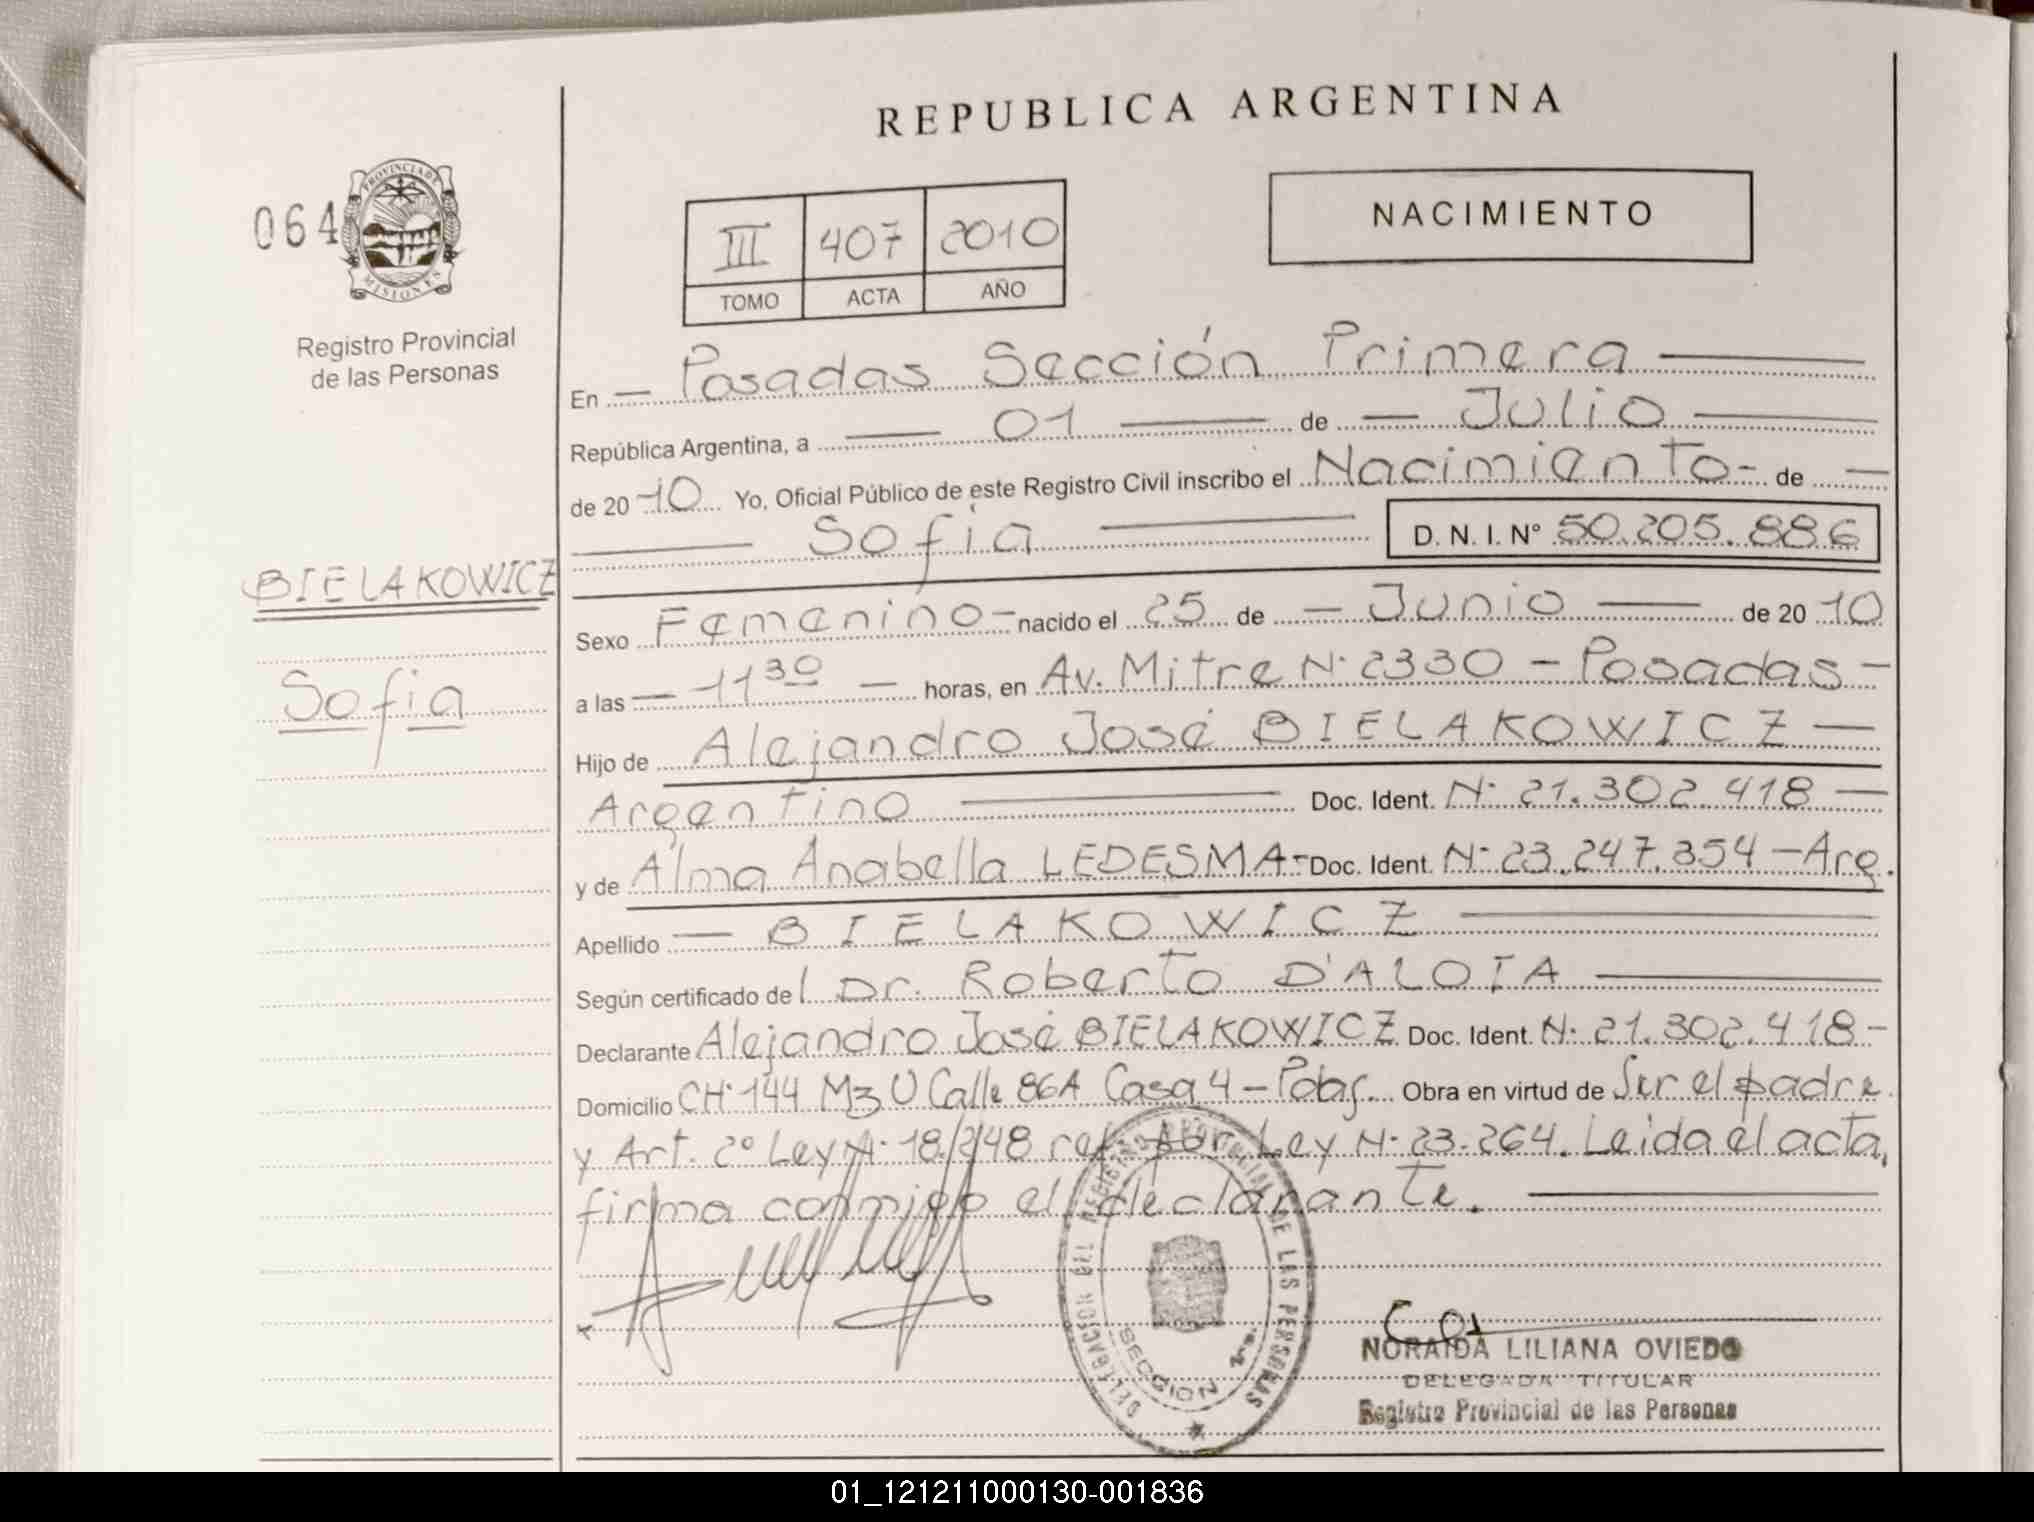 REPUBLICA ARGENTINA
064
PROVINCIA DE
MISIONES
Registro Provincial
de las Personas
III 407 2010
TOMO ACTA AÑO
NACIMIENTO
En Posadas Sección Primera
República Argentina, a 01 de Julio
de 2010 Yo, Oficial Público de este Registro Civil inscribo el Nacimiento de
Sofia D. N. I. N° 50.205.886
BIELAKOWICZ
Sofia
Sexo Femenino nacido el 25 de Junio de 2010
a las 11 30 horas, en Av. Mitre N° 2330 - Posadas
Hijo de Alejandro José BIELAKOWICZ
Argentino Doc. Ident. N° 21.302.418
y de Alma Anabella LEDESMA Doc. Ident. N° 23.247.354 - Arg.
Apellido BIELAKOWICZ
Según certificado del Dr. Roberto D'ALOIA
Declarante Alejandro José BIELAKOWICZ Doc. Ident. N° 21.302.418
Domicilio CH° 144 Mz U Calle 86A Casa 4 - Pdas. Obra en virtud de Ser el padre
y Art. 2° Ley N° 18.248 ref. por Ley N° 23.264. Leida el acta,
firma conmigo el declarante.
DELEGACION DEL REGISTRO PROVINCIAL DE LAS PERSONAS
SECCION 1ra.
NORAIDA LILIANA OVIEDO
DELEGADA TITULAR
Registro Provincial de las Personas
01_121211000130-001836